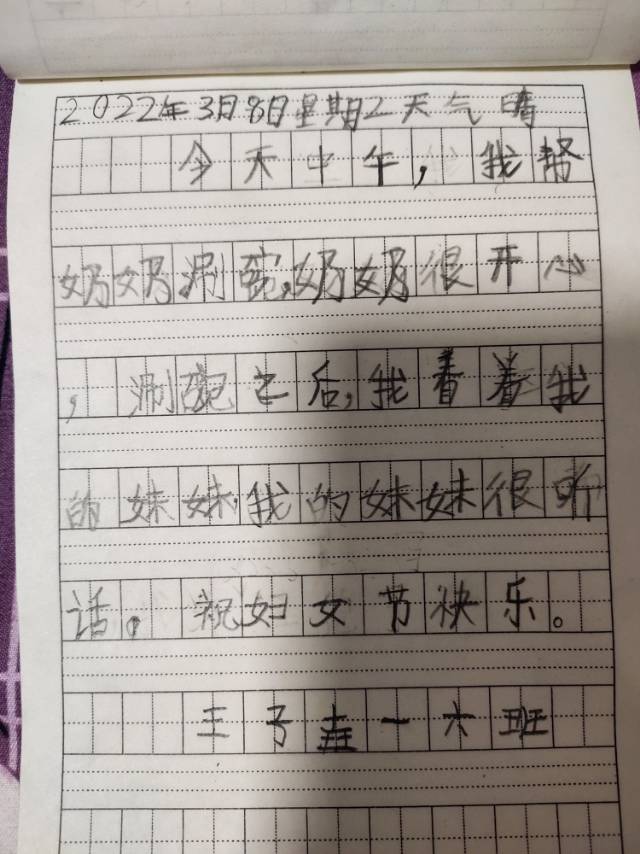 2022年3月8日星期二天气晴
今天中午,我帮
奶奶涮碗,奶奶很开心
,涮碗之后,我看着我
的妹妹,我的妹妹很听
话。祝妇女节快乐。
王子垚一六班